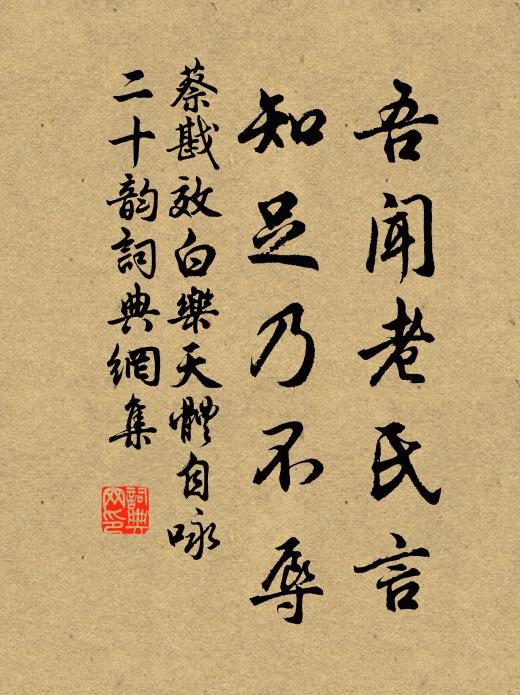 吾聞老氏言
知足乃不辱
蔡戡效白樂天體自咏
二十韵詞典網集
詞典网印